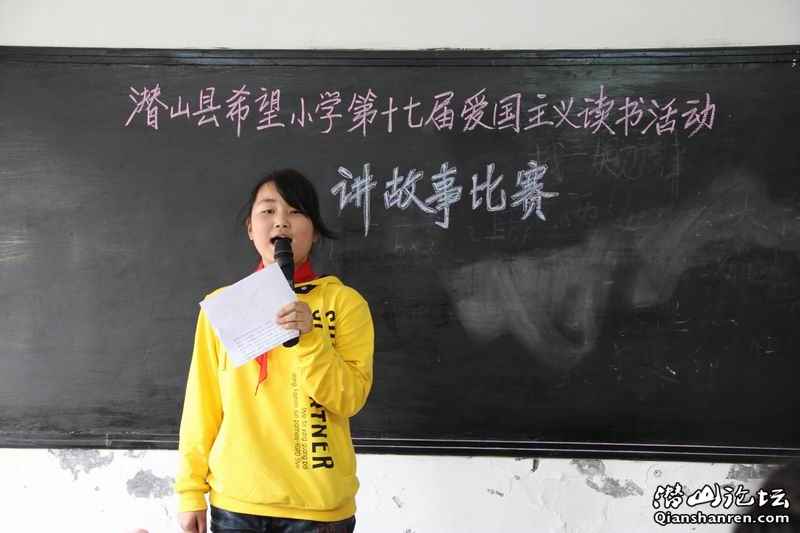 潜山县希望小学第十七届爱国主义读书活动
讲故事比赛
RTNER
潜山论坛
Qianshanren.com